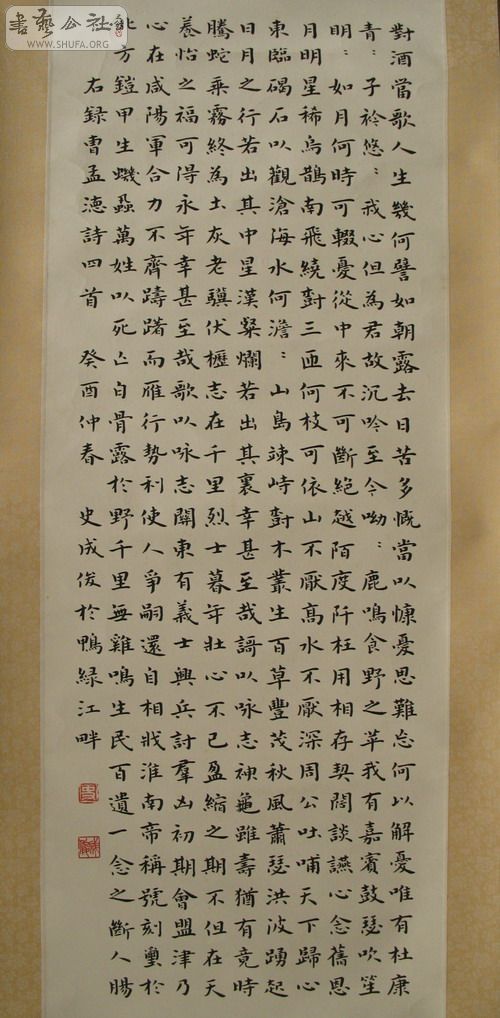 對酒當歌人生幾何譬如朝露去日苦多慨當以慷憂思難忘何以解憂唯有杜康
青〻子衿悠〻我心但為君故沉吟至今呦〻鹿鳴食野之苹我有嘉賓鼓瑟吹笙
明〻如月何時可輟憂從中來不可斷絕越陌度阡枉用相存契闊談讌心念舊恩
月明星稀烏鵲南飛繞對三匝何枝可依山不厭高水不厭深周公吐哺天下歸心
東臨碣石以觀滄海水何澹〻山島竦峙對木叢生百草豐茂秋風蕭瑟洪波踴起
日月之行若出其中星漢粲爛若出其裏幸甚至哉謌以咏志神龜雖壽猶有竟時
騰蛇乘霧終為土灰老驥伏櫪志在千里烈士暮年壯心不已盈縮之期不但在天
養怡之福可得永年幸甚至哉歌以咏志關東有義士興兵討羣凶初期會盟津乃
心在咸陽軍合力不齊躊躇而雁行勢利使人爭嗣還自相戕淮南帝稱號刻璽於
北方鎧甲生蟣蝨萬姓以死亡白骨露於野千里無雞鳴生民百遺一念之斷人腸
右錄曹孟德詩四首 癸酉仲春 史成俊於鴨綠江畔
書藝公社
WWW.SHUFA.ORG